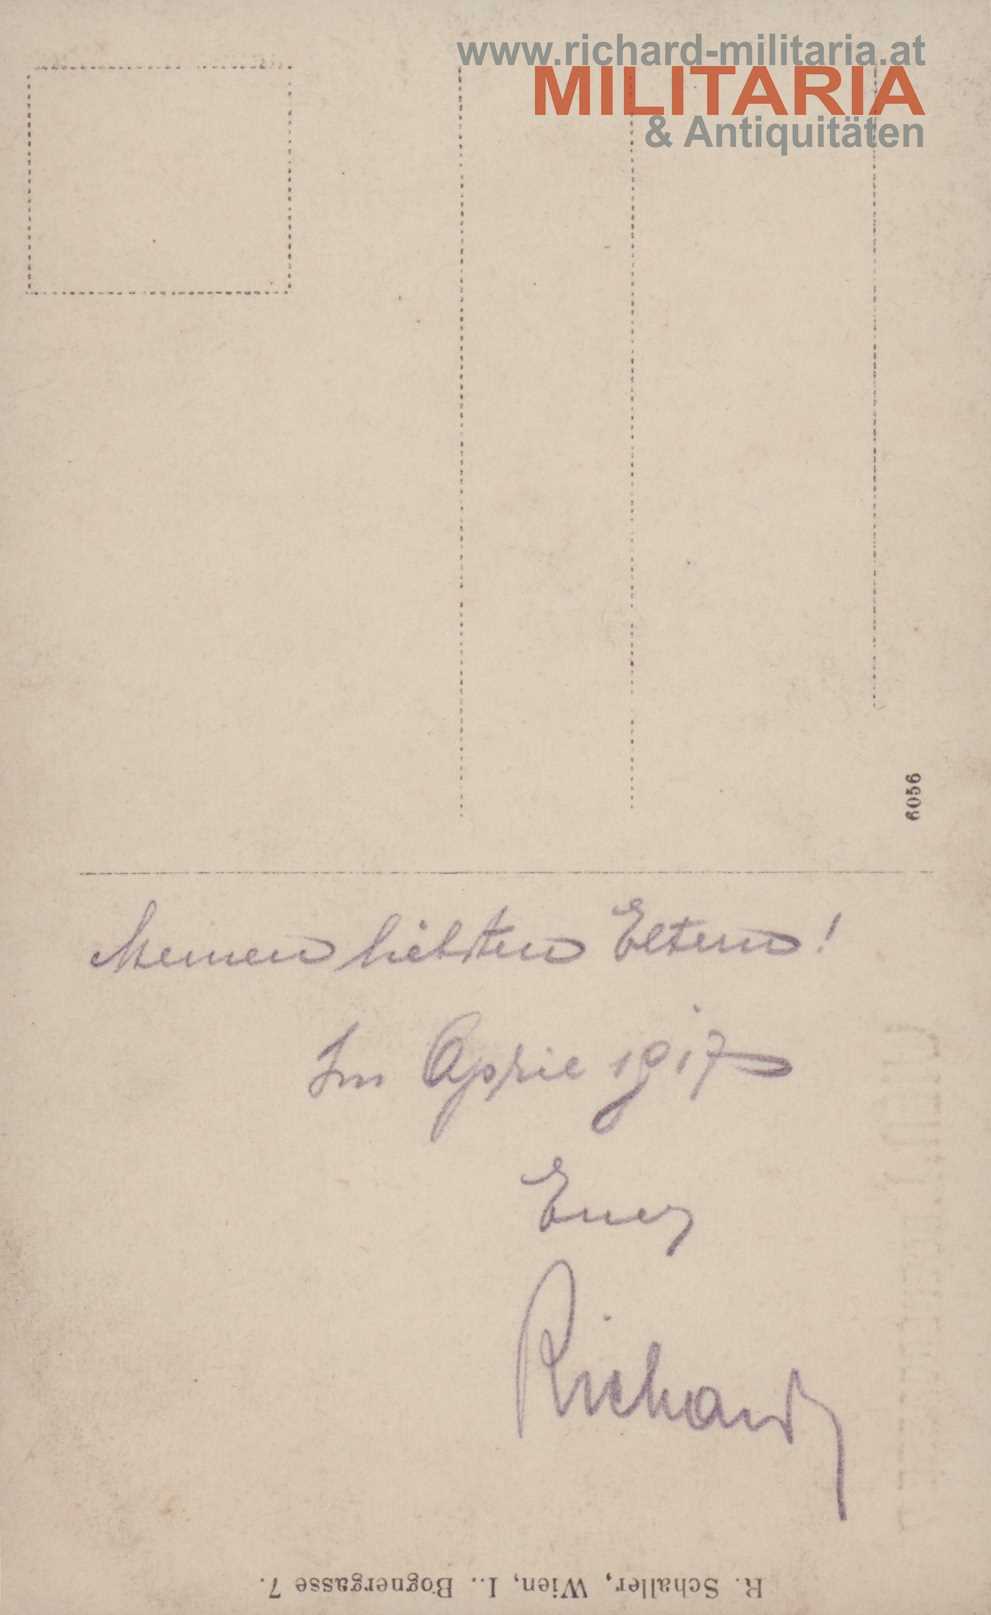 www.richard-militaria.at
MILITARIA
& Antiquitäten
6056
Meinen liebsten Eltern!
Im April 1917
Euer
Richard
R. Schaller, Wien, I., Bognergasse 7.